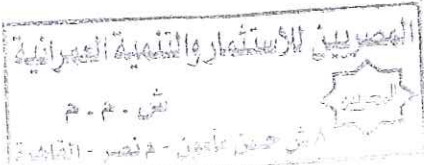 المصريين للاستثمار والتنمية العمرانية
ش . م . م
ش حسن مأمون - م نصر - القاهرة